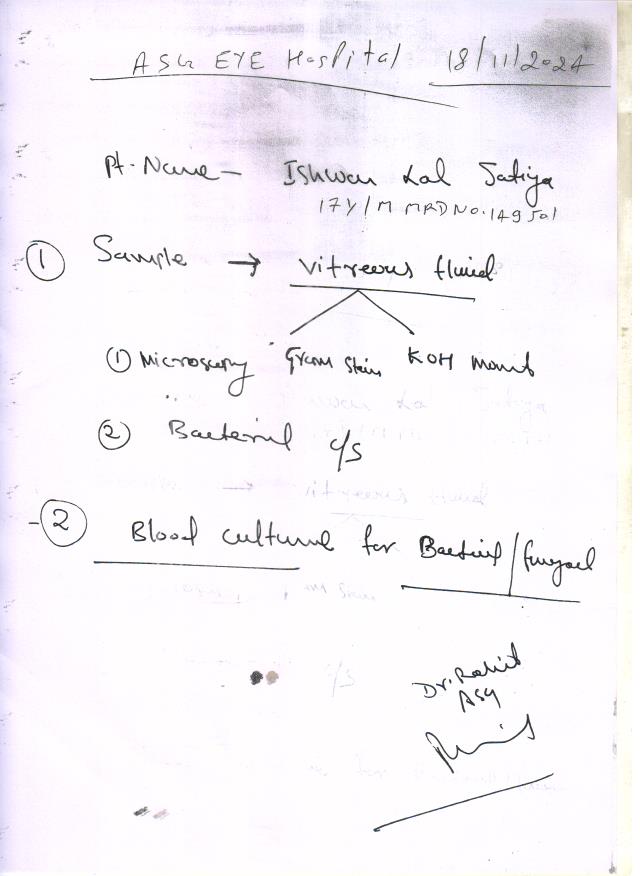 ASG EYE Hospital 18/11/2024
Pt. Name - Ishwar Lal Jatiya
17Y/M MRD No. 149501
① Sample → Vitreous fluid
① Microscopy Gram Stain KOH Mount
② Bacterial c/s
② Blood culture for Bacterial/fungal
Dr. Rohit
ASG